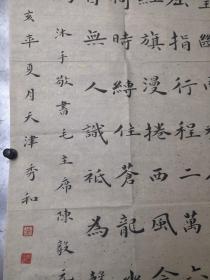 屈指行程二萬
旗漫捲西風今
時縛住蒼龍
無人識祗為
沐手敬書毛主席陳毅元
亥年夏月天津秀和